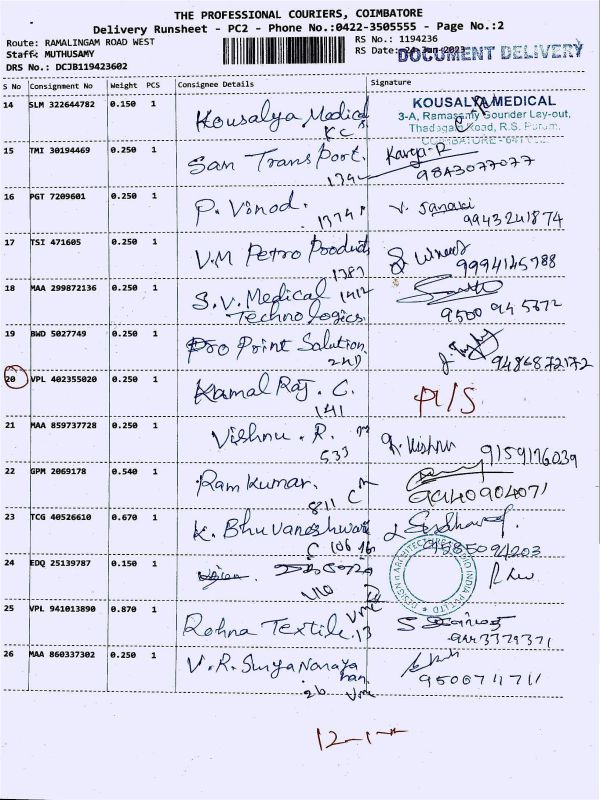 THE PROFESSIONAL COURIERS, COIMBATORE
Delivery Runsheet - PC2 - Phone No.:0422-3505555 - Page No.:2
Route: RAMALINGAM ROAD WEST
RS No.: 1194236
Staff: MUTHUSAMY
RS Date: 24-Jun-2023
DOCUMENT DELIVERY
DRS No.: DCJB119423602
S No Consignment No Weight PCS Consignee Details Signature
14 SLM 322644782 0.150 1 Kousalya Medical
KOUSALYA MEDICAL
3-A, Ramasamy Gounder Lay-out,
Thadagam Road, R.S. Puram,
15 TMI 30194469 0.250 1 San Transport.
9843077077
16 PGT 7209601 0.250 1 P. Vinod. V. Janaki
9943241874
17 TSI 471605 0.250 1 V.M Petro Products
1387 9994145788
18 MAA 299872136 0.250 1 S.V. Medical 1412
Technologics. 9500 945672
19 BWD 5027749 0.250 1 Pro Print Solution.
2ND 9486872172
20 VPL 402355020 0.250 1 Kamal Raj. C.
141
21 MAA 859737728 0.250 1 Vishnu. R.
533 9159176039
22 GPM 2069178 0.540 1 Ram Kumar.
811 9940904071
23 TCG 40526610 0.670 1 K. Bhuvaneshwari
24 EDQ 25139787 0.150 1
25 VPL 941013890 0.870 1 Rohna Textile. 13
26 MAA 860337302 0.250 1 V.R. Suryanaraya
nan.
26 9500711711